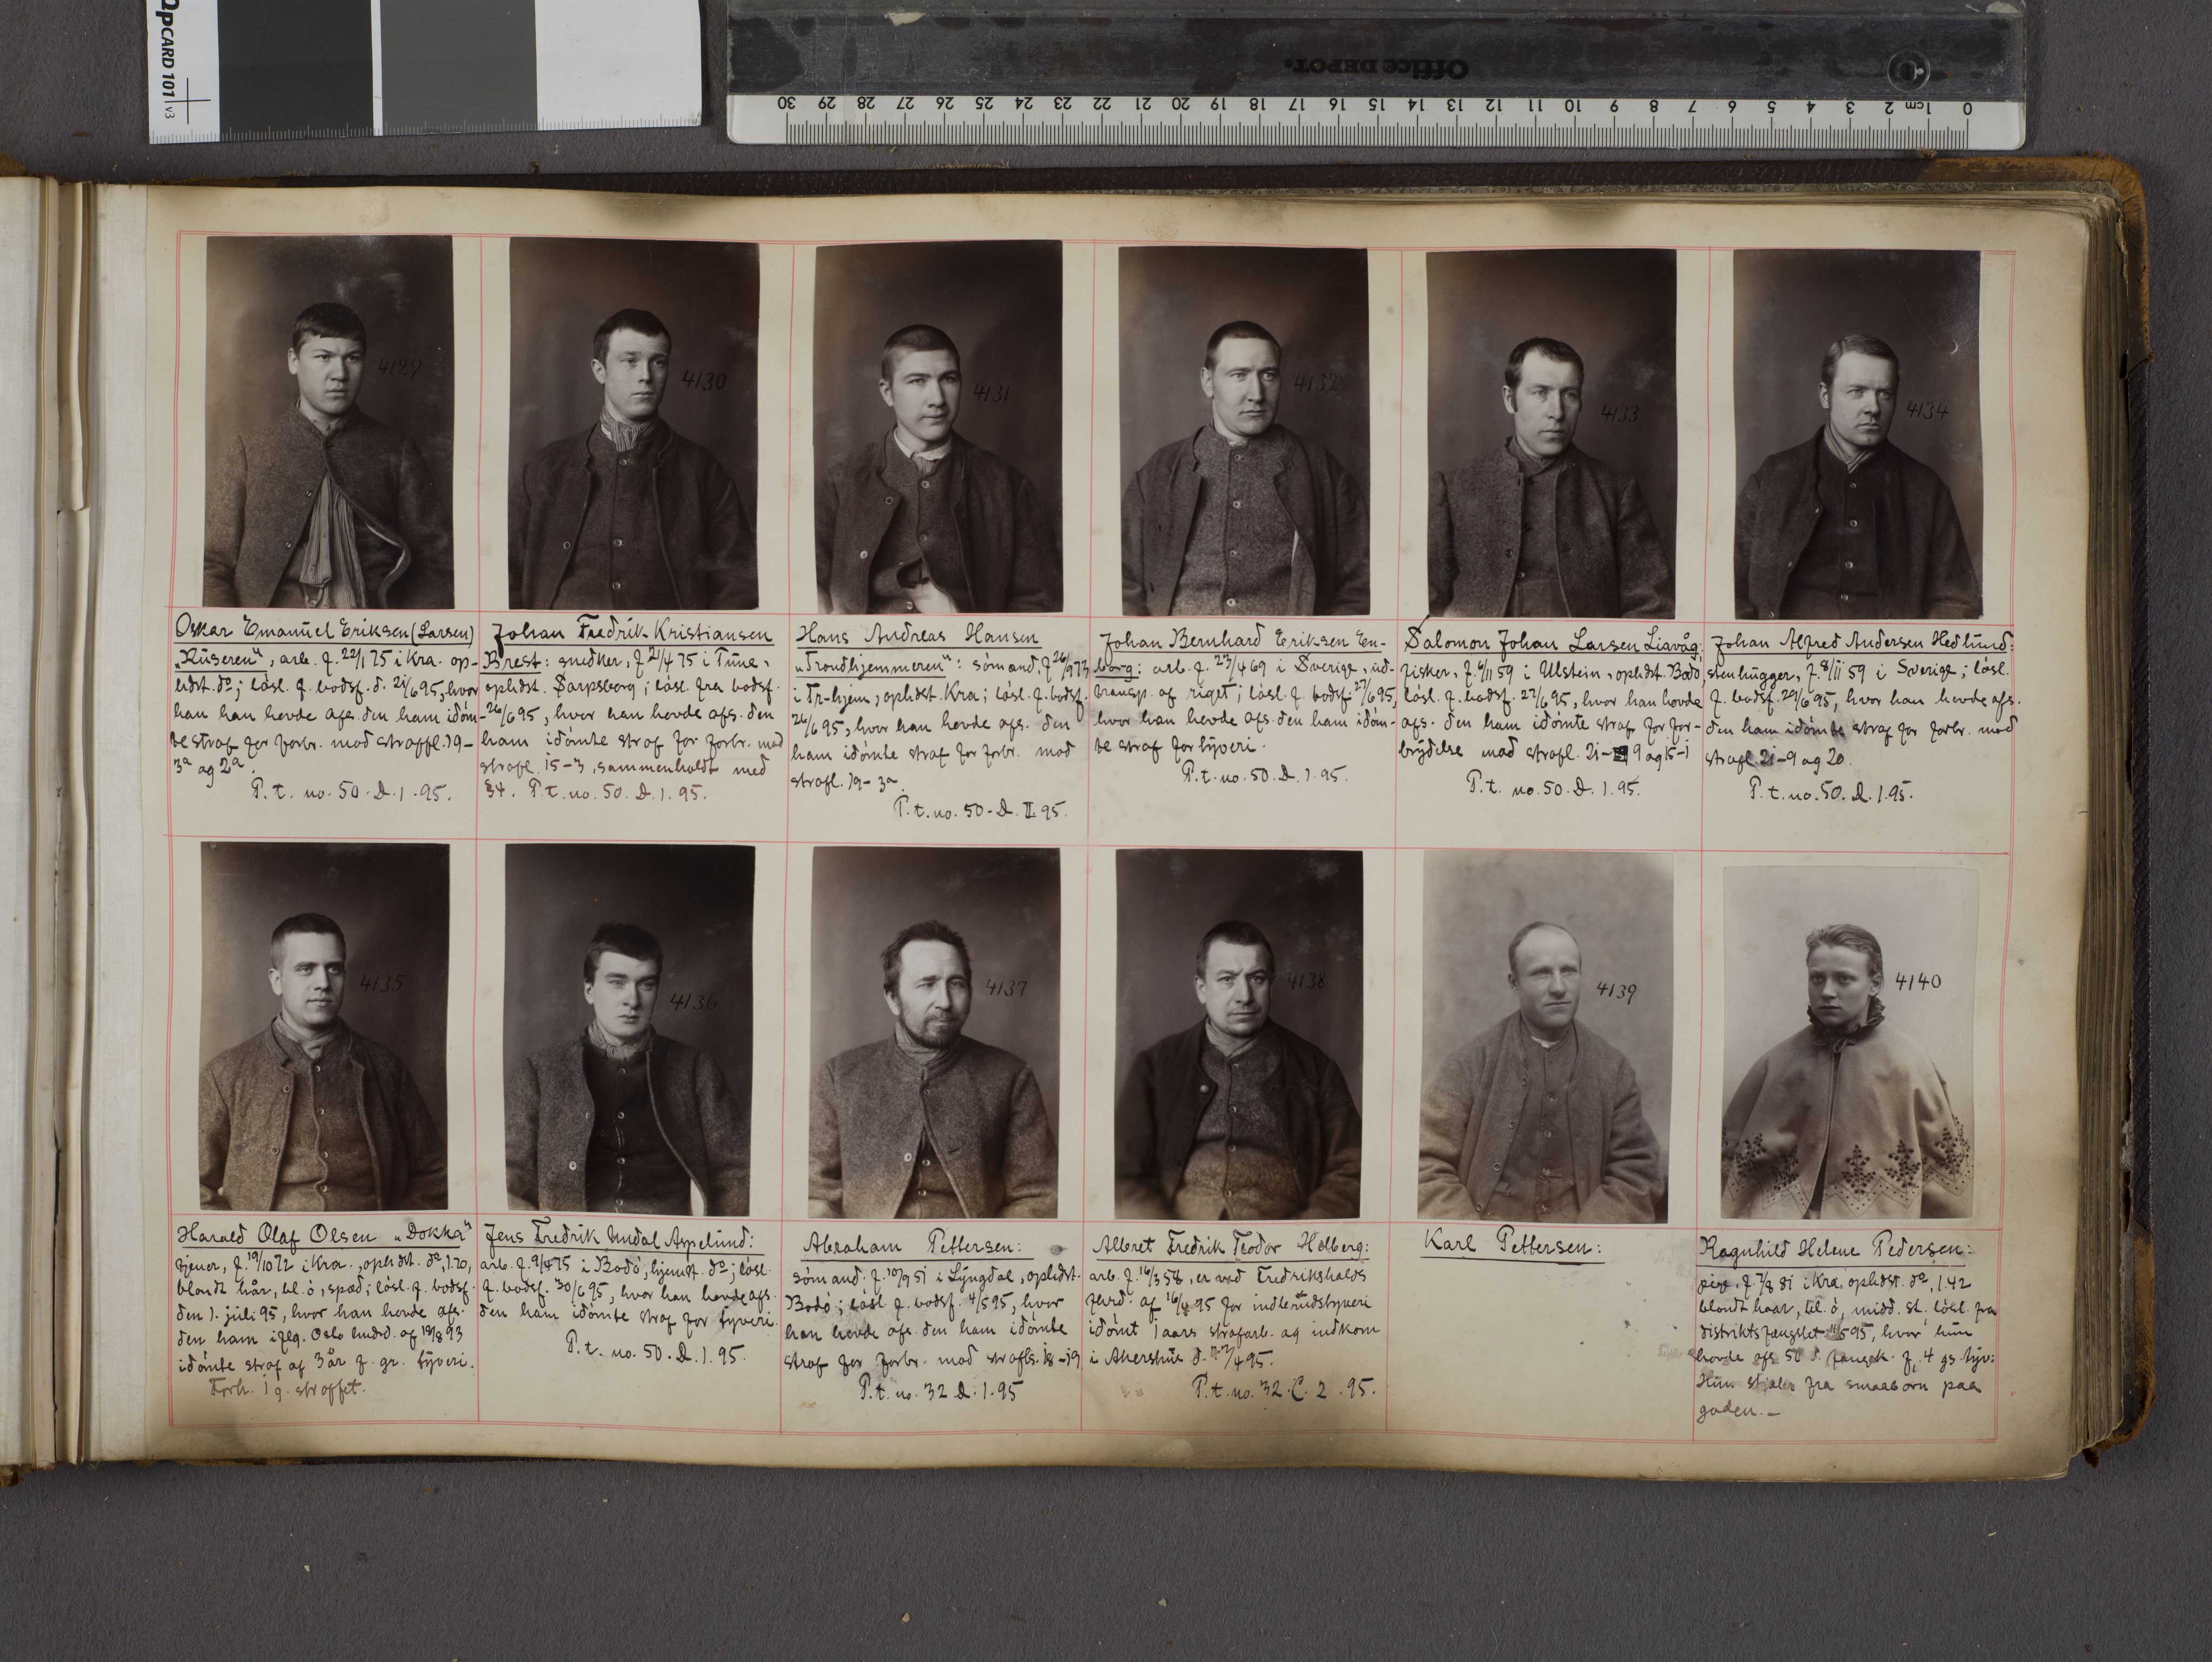 OpCARD 101 v3
Office DEPOT.
30 29 28 27 26 25 24 23 22 21 20 19 18 17 16 15 14 13 12 11 10 9 8 7 6 5 4 3 2 cm 1 0
4129
4130
4131
4132
4133
4134
Oskar Emanuel Eriksen (Larsen)
"Ruseren", arb. f. 22/1 75 i Kra. op-
lidst. do; løsl. f. bodsf. d. 24/6 95, hvor
han han hevde afs. den ham idøm-
te straf for forbr. mod straffl. 19-
3a og 2a.
P.t. no. 50. D. 1. 95.
Johan Fredrik Kristiansen
Brest: snedker, f 21/4 75 i Tune,
oplidst. Sarpsborg; løsl. fra bodsf.
26/6 95, hvor han hevde afs. den
ham idømte straf for forbr. mod
strafl. 15-3, sammenholdt med
§4. P.t. no. 50. D. 1. 95.
Hans Andreas Hansen
"Trondhjemmeren": sømand, f 26/9 73
i Tr-hjem, oplidst. Kra; løsl. f. bodsf.
26/6 95, hvor han hevde afs. den
ham idømte straf for forbr. mod
strafl. 19-3a.
P.t. no. 50-D. II 95.
Johan Bernhard Eriksen En-
borg: arb. f. 23/4 69 i Sverige, ud-
transp. af riget; løsl. f. bodsf. 27/6 95,
hvor han hevde afs. den ham idøm-
te straf for tyveri.
P.t. no. 50. D. 1. 95.
Salomon Johan Larsen Liavåg:
fisker, f. 6/11 59 i Ulstein, oplidst. Bodø,
løsl. f. bodsf. 27/6 95, hvor han hevde
afs. den ham idømte straf for for-
brydelse mod strafl. 21-9 og 15-1
P.t. no. 50. D. 1. 95.
Johan Alfred Andersen Hedlund:
stenhugger, f. 8/11 59 i Sverige; løsl.
f. bodsf. 29/6 95, hvor han hevde afs.
den ham idømte straf for forbr. mod
strafl. 21-9 og 20.
P.t. no. 50. D. 1. 95.
4135
4136
4137
4138
4139
4140
Harald Olaf Olsen "Dokka"
tjener, f. 19/10 72 i Kra., oplidst. do, 1.70,
blondt hår, bl. ø, spæd; løsl. f. bodsf.
den 1. juli 95, hvor han hevde afs.
den ham iflg. Oslo lmdsd. af 19/8 93
idømte straf af 3 år f. gr. tyveri.
Forh. 1 g. straffet.
Jens Fredrik Undal Aspelund:
arb. f. 9/4 75 i Bodø, hjemst. do; løsl.
f. bodsf. 30/6 95, hvor han hevde afs.
den ham idømte straf for tyveri.
P.t. no. 50. D. 1. 95.
Abraham Pettersen:
sømand. f. 10/9 51 i Lyngdal, oplidst.
Bodø; løsl. f. bodsf. 4/5 95, hvor
han hevde afs. den ham idømte
straf for forbr. mod strafls. 18-19
P.t. no. 32 D. 1. 95
Albret Fredrik Teodor Helberg:
arb. f. 16/3 58, er ved Fredrikshalds
af 16/4 95 for indbrudstyveri
idømt 1 aars strafarb. og indkom
i Akershus d. 22/4 95.
P.t. no. 32. C. 2. 95.
Karl Pettersen:
Ragnhild Helene Pedersen:
pige, f. 7/8 81 i Kra, oplidst. do, 1.42
blondt haar, bl. ø, midd. st. løsl. fra
distriktsfængslet 11/5 95, hvor hun
hevde afs. 50 d. fængsl. f. 4 gs. tyv:
Hun stjæler fra smaabørn paa
gaden. -